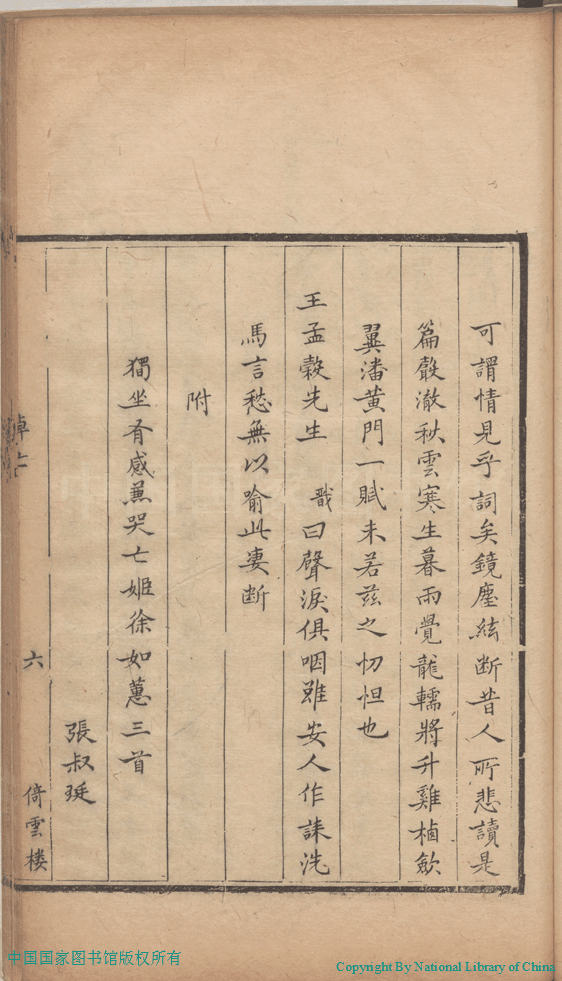 可謂情見乎詞矣鏡塵絃断昔人所悲讀是
篇殽澈秋雲寒生暮雨覺龍轜將升雞樐歛
翼潘黄門一賦未若茲之忉怛也
王孟榖先生 戩曰聲淚俱咽雖安人作誄洗
馬言愁無以喻此凄断
附
獨坐有感蕪哭亡姬徐如蕙三首
張叔珽
六
倚雲楼
中国国家图书馆版权所有
Copyright By National Library of China